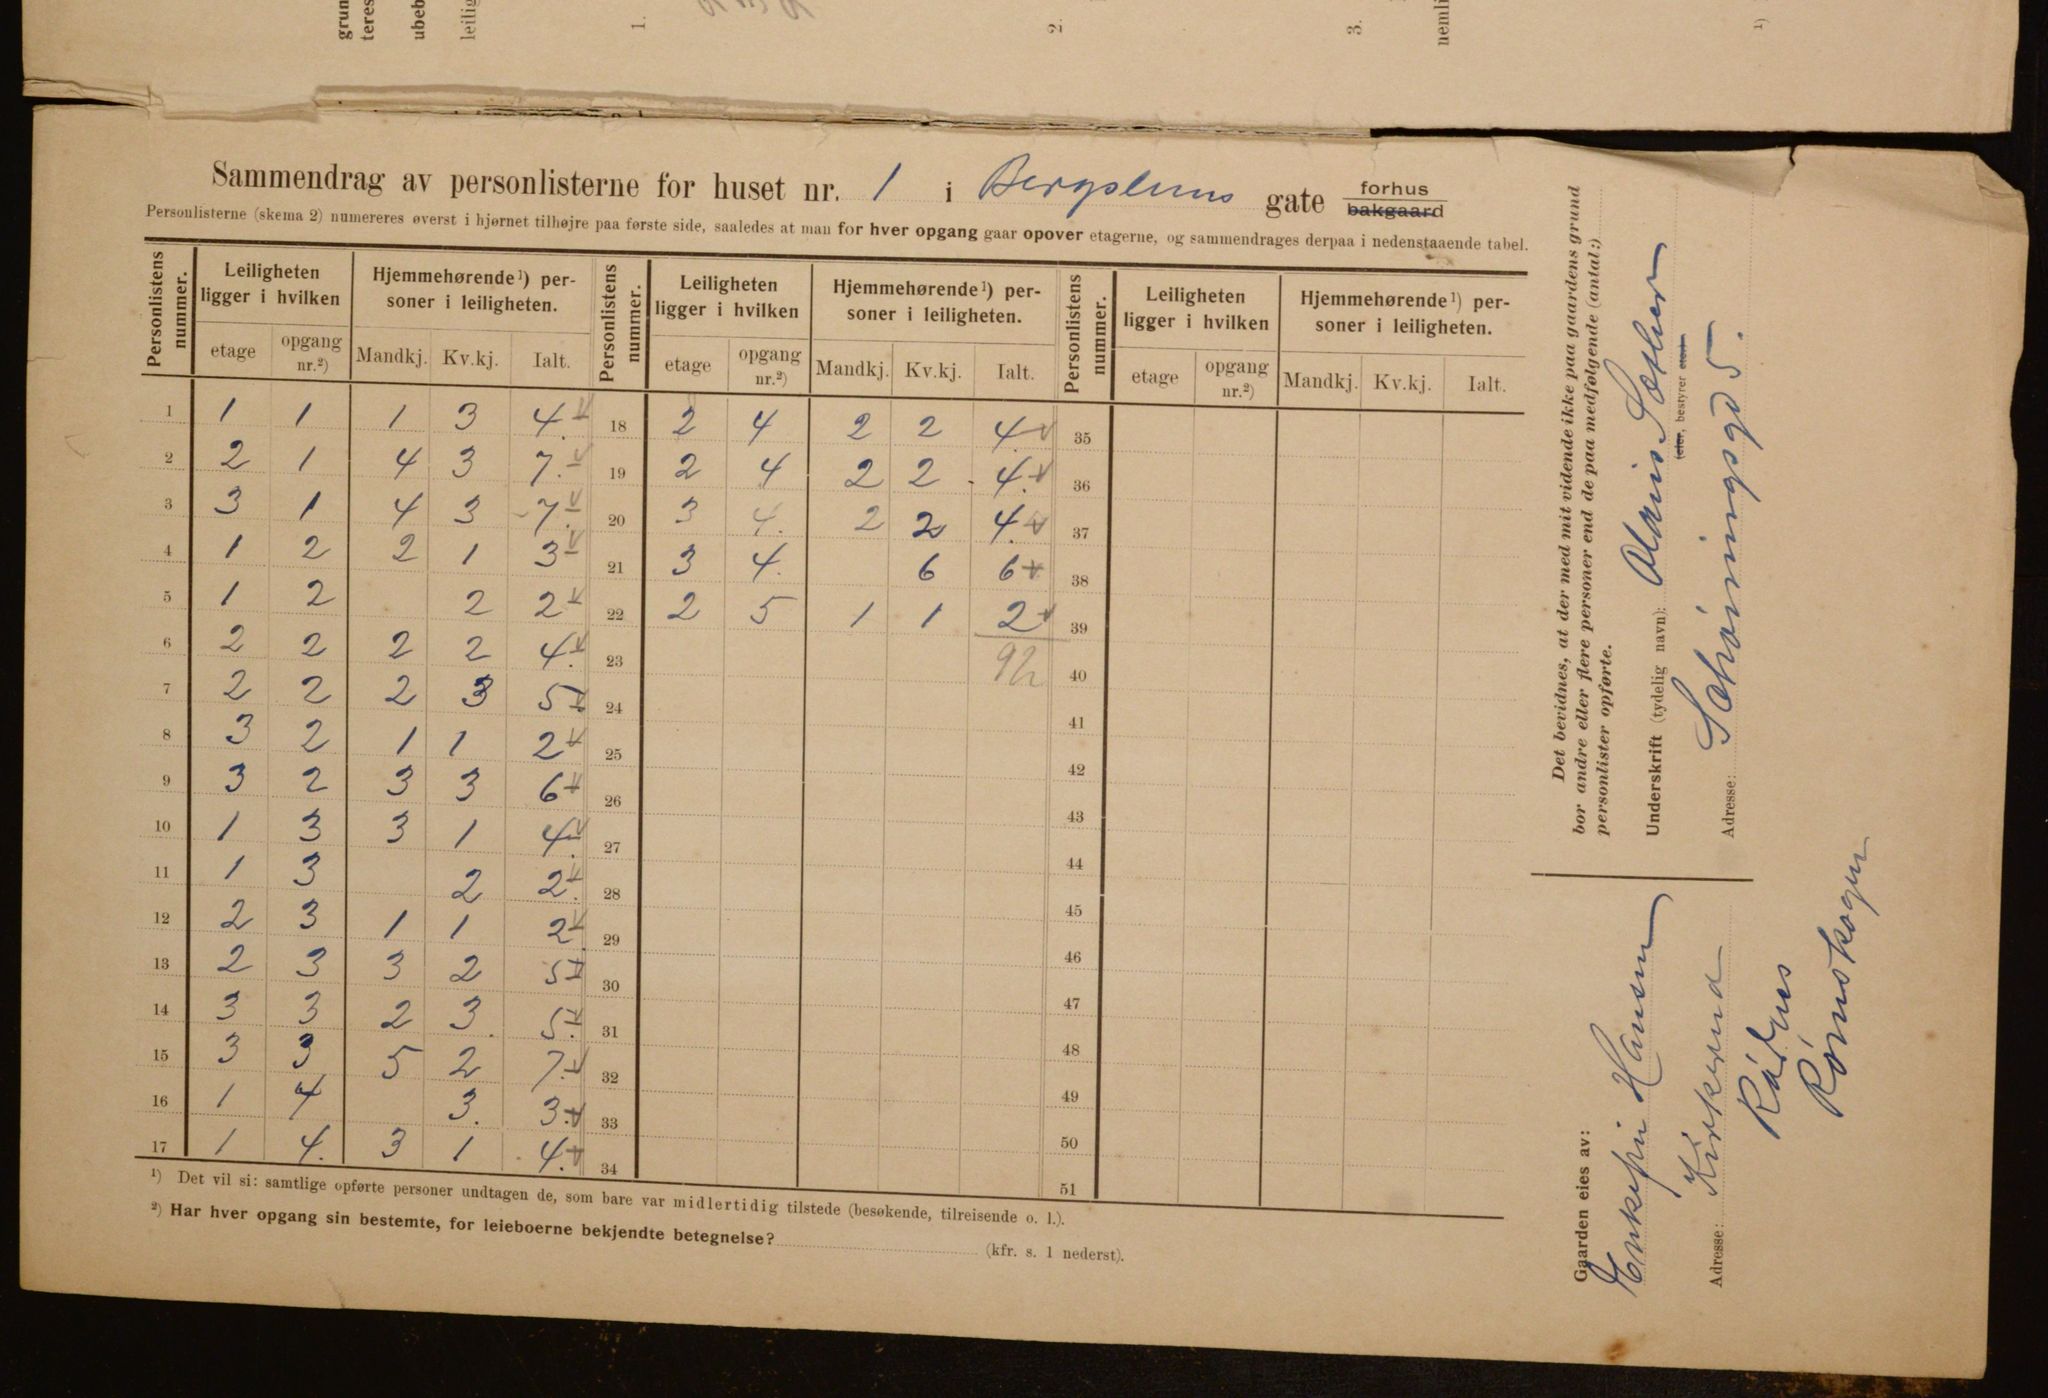 grun
teres
ubeb
leilig
1.
2.
3.
nemli
1)
Sammendrag av personlisterne for huset nr. 1 i Bergsliens gate forhus bakgaard
Personlisterne (skema 2) numereres øverst i hjørnet tilhøjre paa første side, saaledes at man for hver opgang gaar opover etagerne, og sammendrages derpaa i nedenstaaende tabel.
Personlistens nummer. Leiligheten ligger i hvilken Hjemmehørende¹) personer i leiligheten. Personlistens nummer. Leiligheten ligger i hvilken Hjemmehørende¹) personer i leiligheten. Personlistens nummer. Leiligheten ligger i hvilken Hjemmehørende¹) personer i leiligheten.
etage opgang nr.²) Mandkj. Kv.kj. Ialt. etage opgang nr.²) Mandkj. Kv.kj. Ialt. etage opgang nr.²) Mandkj. Kv.kj. Ialt.
1 1 1 1 3 4. 18 2 4 2 2 4 35
2 2 1 4 3 7. 19 2 4 2 2 4. 36
3 3 1 4 3 7. 20 3 4. 2 2 4. 37
4 1 2 2 1 3 21 3 4. 6 6 38
5 1 2 2 2 22 2 5 1 1 2 39
6 2 2 2 2 4. 23 92 40
7 2 2 2 3 5 24 41
8 3 2 1 1 2 25 42
9 3 2 3 3 6 26 43
10 1 3 3 1 4. 27 44
11 1 3 2 2. 28 45
12 2 3 1 1 2 29 46
13 2 3 3 2 5 30 47
14 3 3 2 3. 5. 31 48
15 3 3 5 2 7. 32 49
16 1 4 3. 3. 33 50
17 1 4. 3 1 4. 34 51
¹) Det vil si: samtlige opførte personer undtagen de, som bare var midlertidig tilstede (besøkende, tilreisende o. l.).
²) Har hver opgang sin bestemte, for leieboerne bekjendte betegnelse? (kfr. s. 1 nederst).
Det bevidnes, at der med mit vidende ikke paa gaardens grund
bor andre eller flere personer end de paa medfølgende (antal:)
personlister opførte.
Underskrift (tydelig navn):
eier, bestyrer
Adresse: Schøningsgd 5.
Gaarden eies av:
Enkefru Hansen
Adresse: Kirkerud
Rømskogen